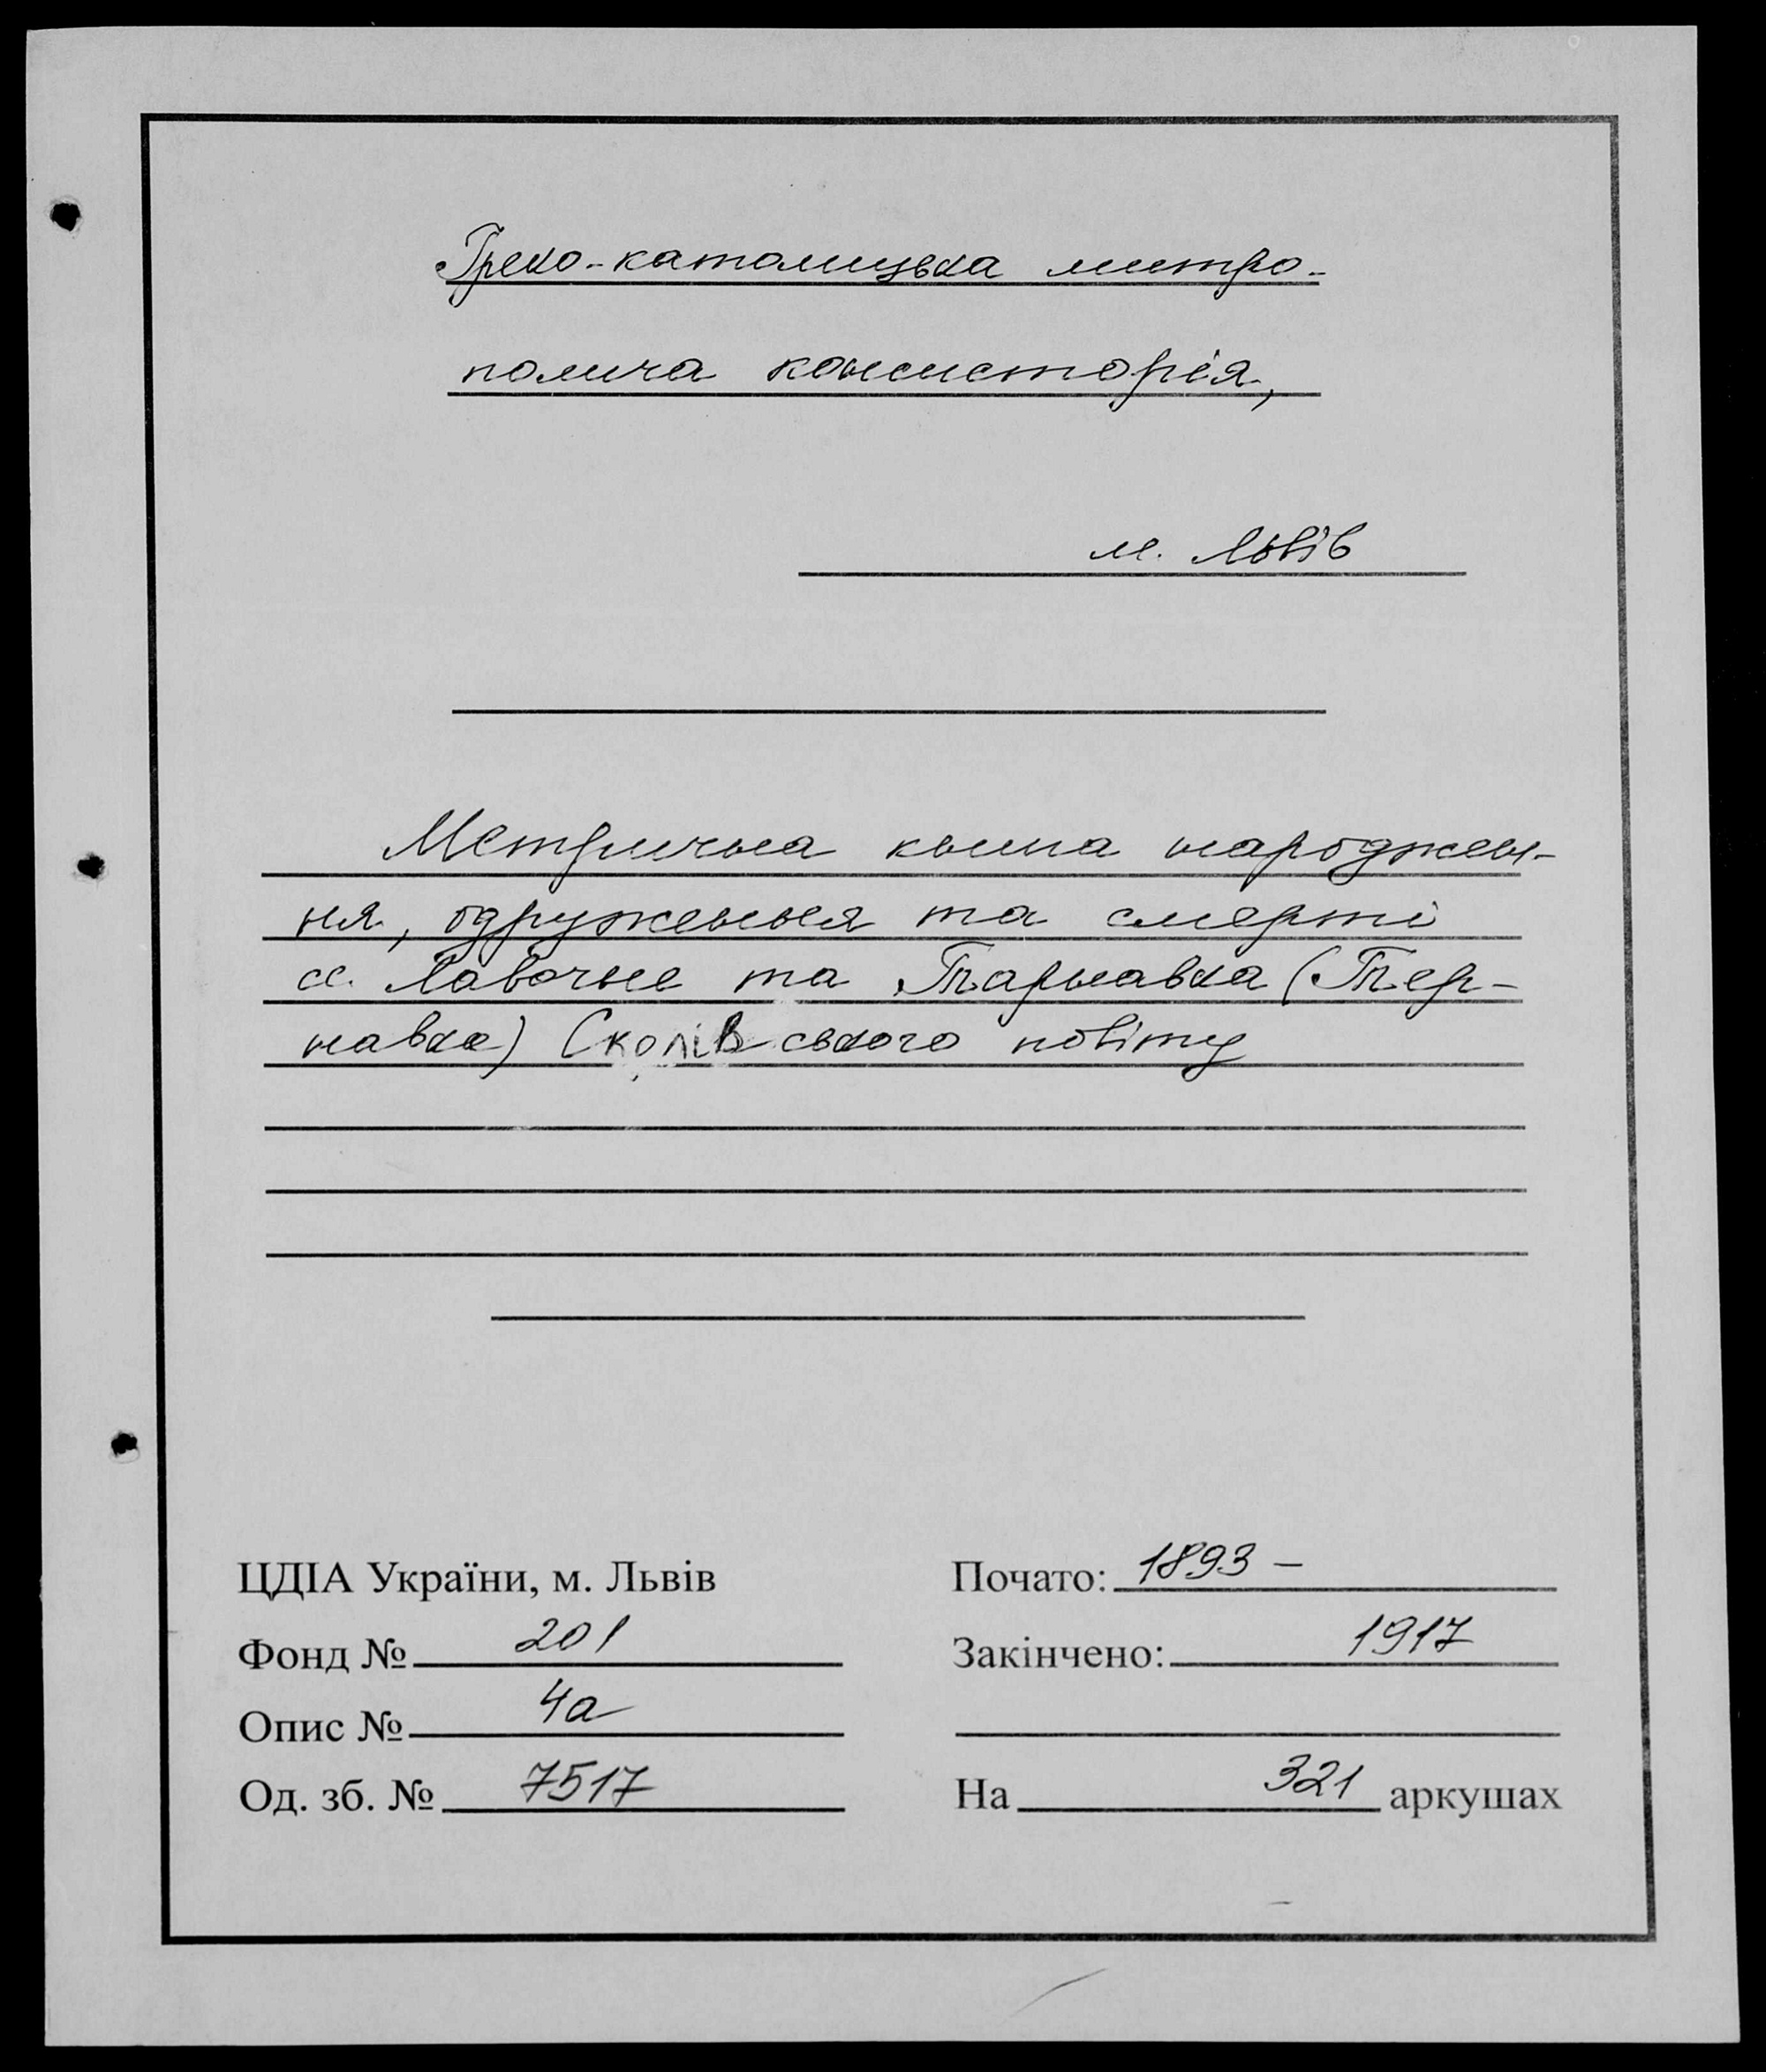 Греко-католицька митро-
полича консисторія,
м. Львів
Метрична книга народжен-
ня, одруження та смерті
сс. Лавочне та Тарнавка (Тер-
навка) Сколівського повіту
ЦДІА України, м. Львів
Фонд № 201
Опис № 4а
Од. зб. № 7517
Почато: 1893 –
Закінчено: 1917
На 321 аркушах